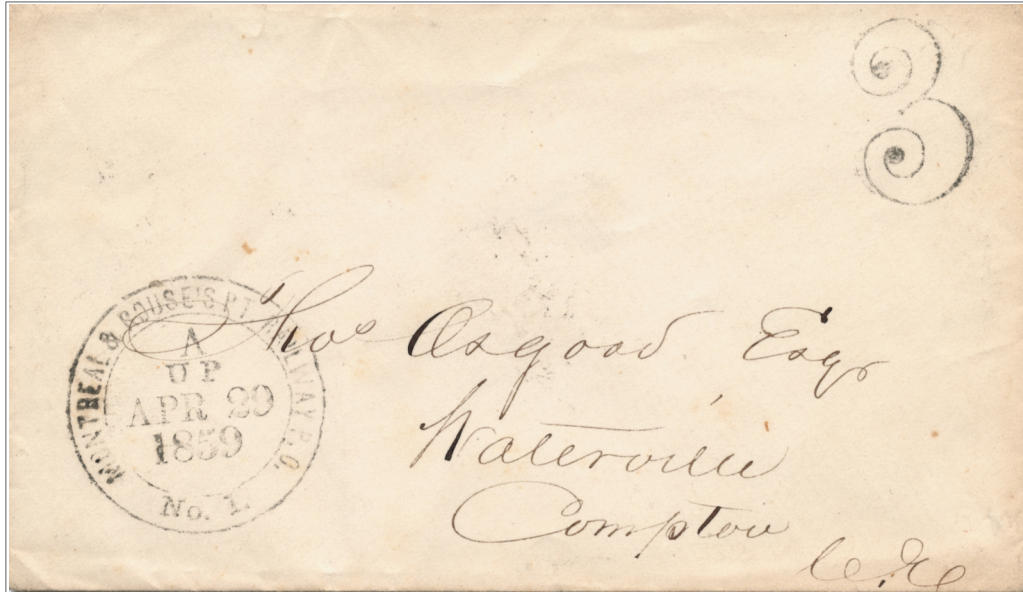 3
MONTREAL & ROUSE'S PT. RAILWAY P.O.
A
UP
APR 29
1859
No. 1.
Thos Osgood Esqr
Waterville
Compton
C.E.